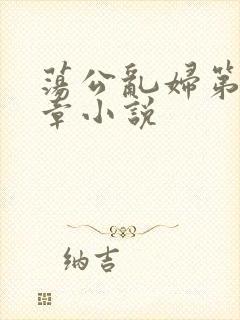 蕩公亂婦第
章小説
纳吉